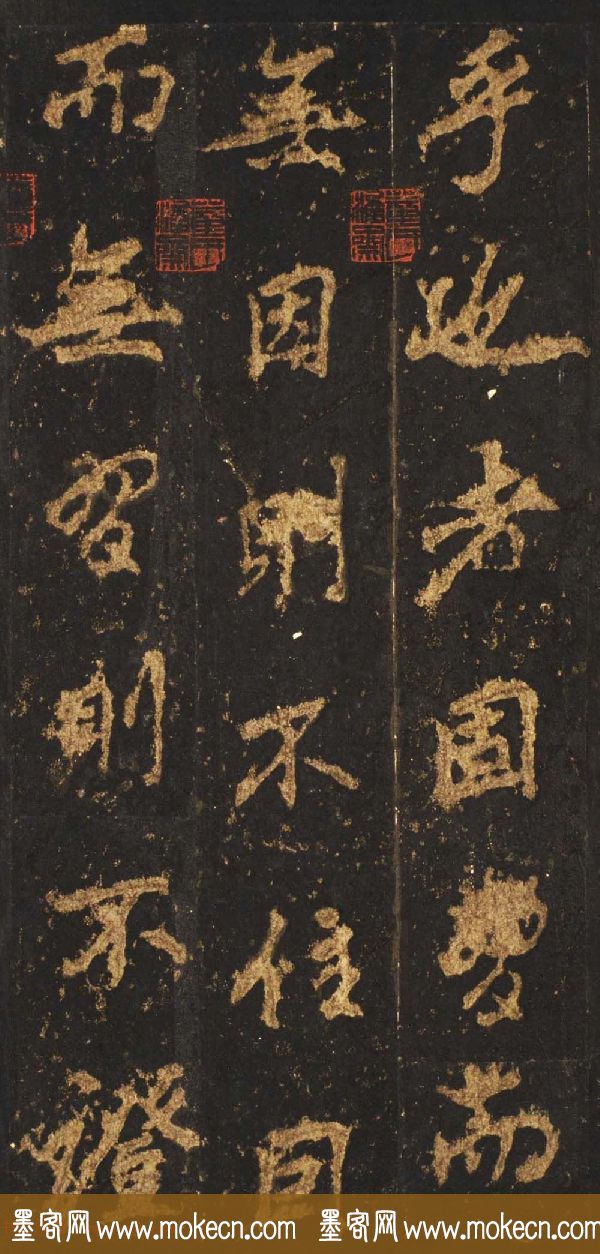 乎者固而
無因則不住因
而無習則不證
墨客网 www.mokecn.com 墨客网 www.mokecn.com